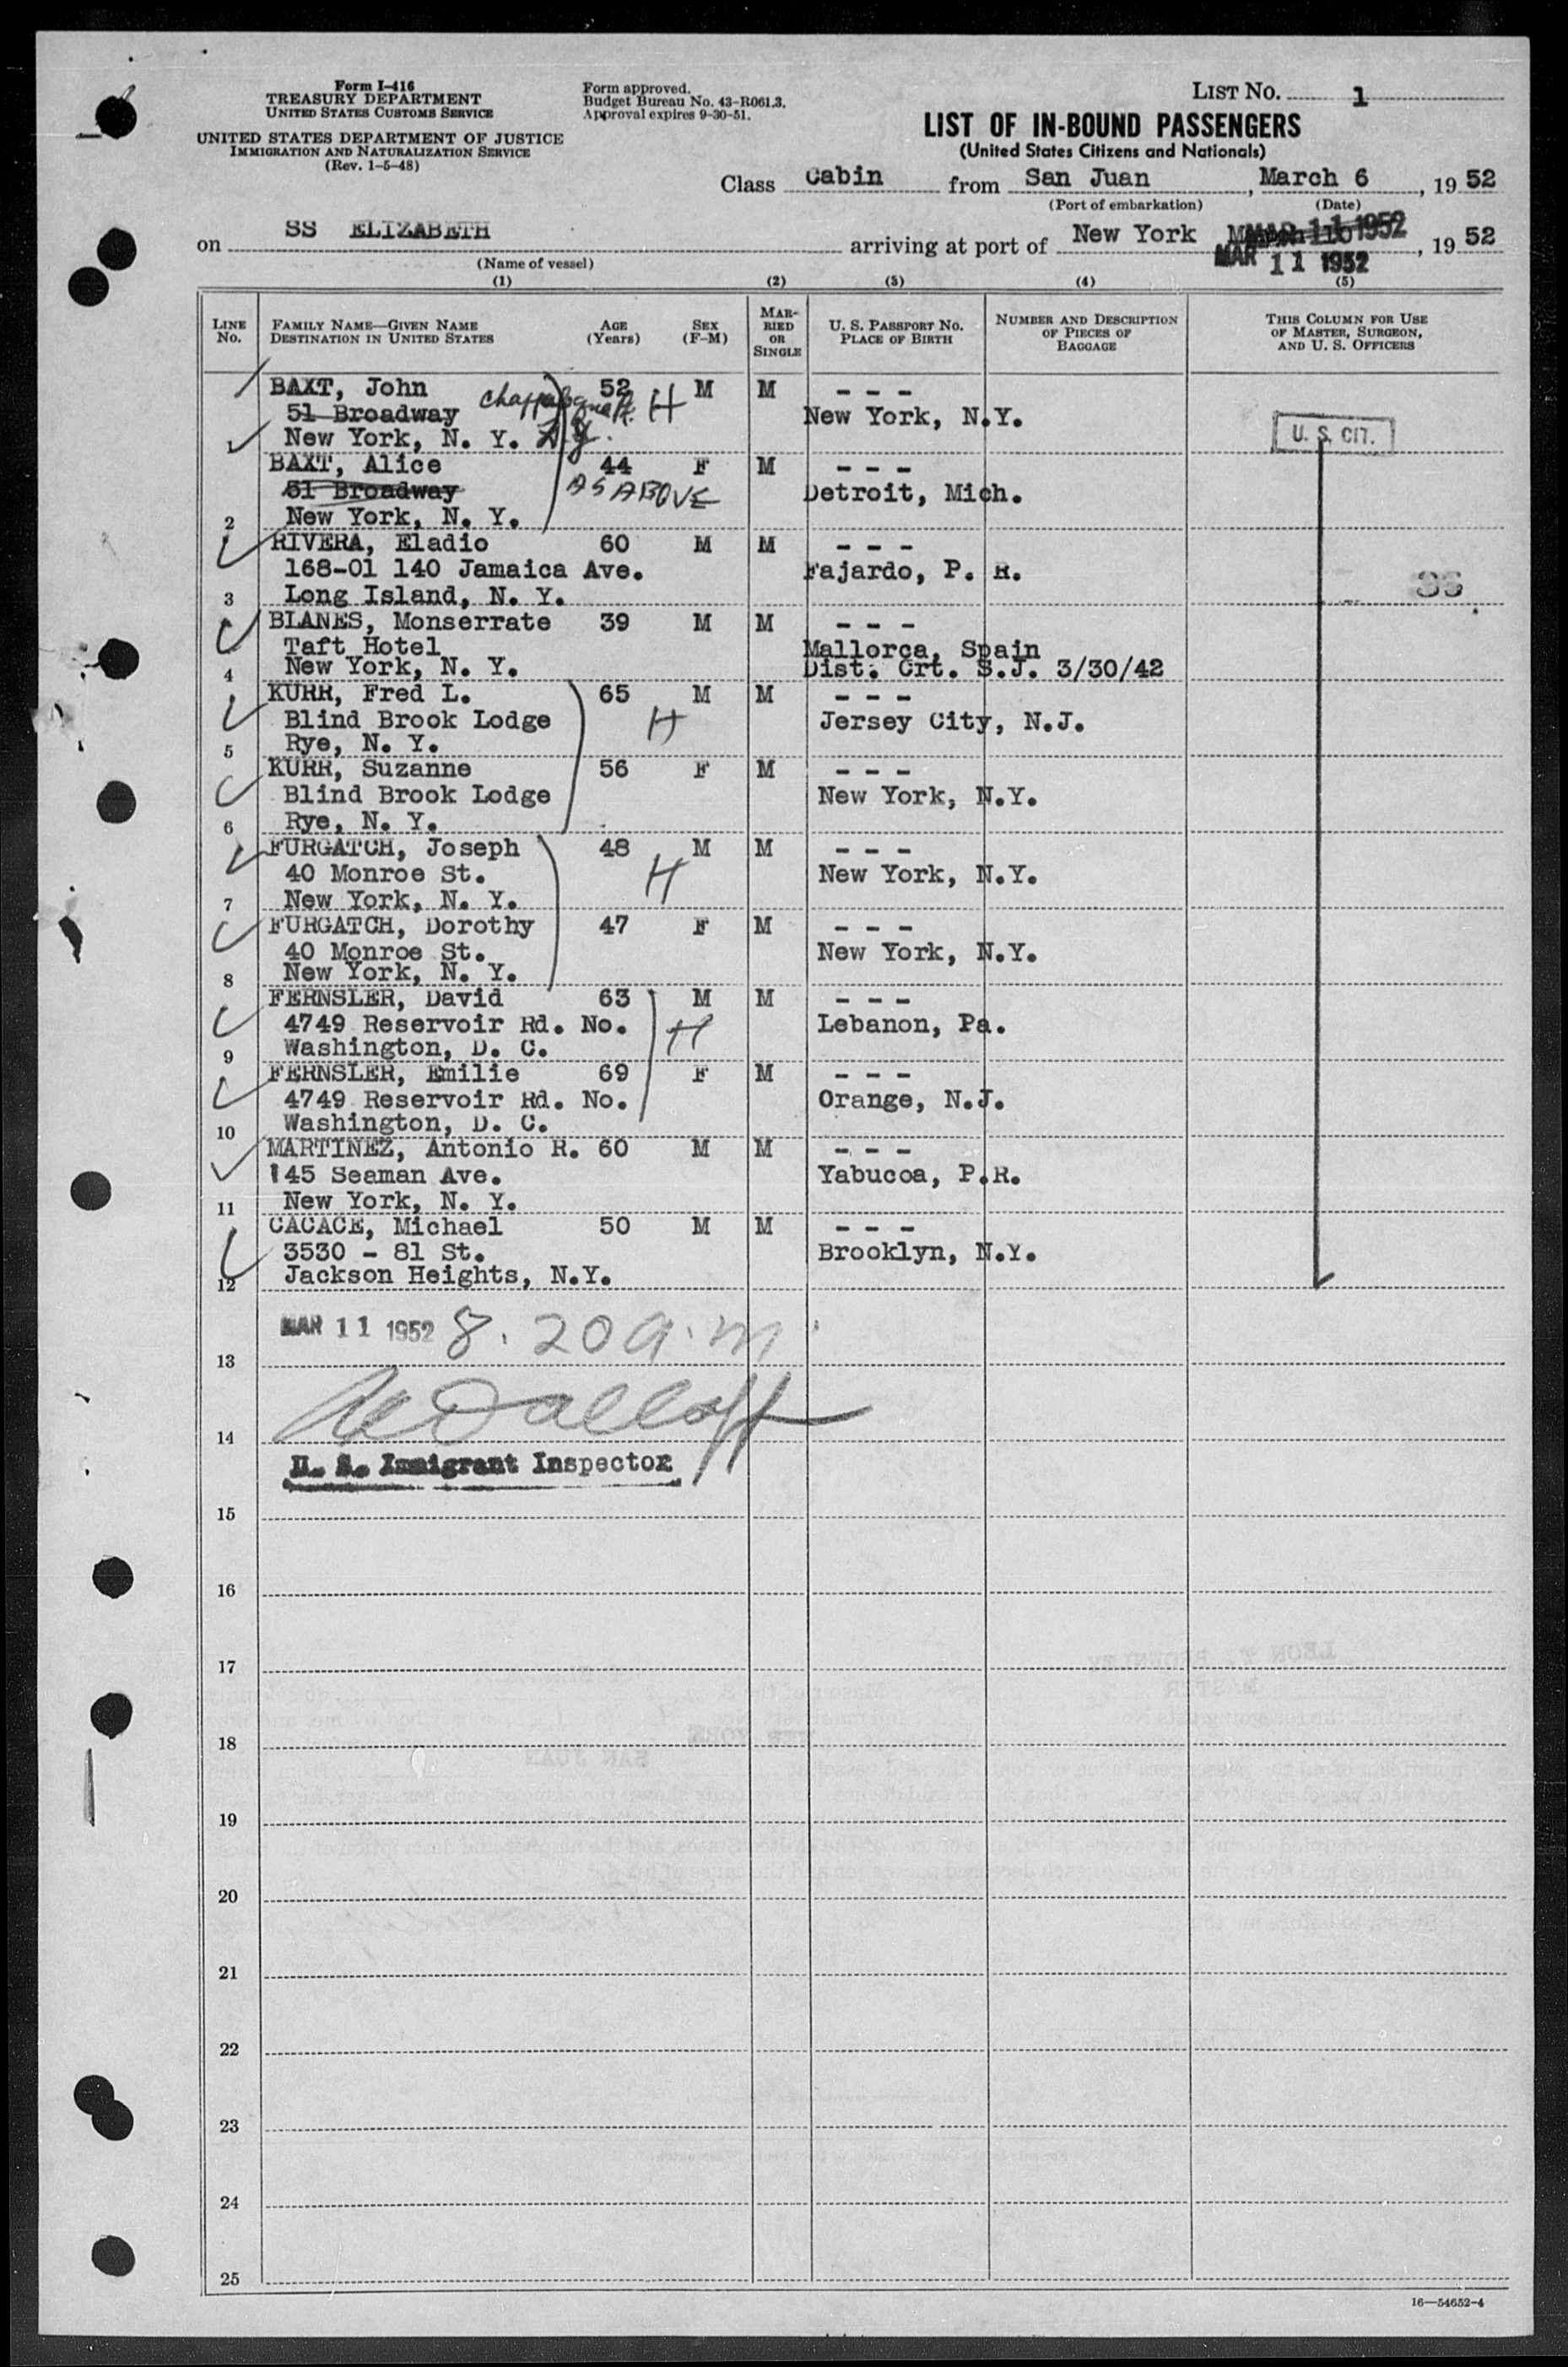 Form I-416
TREASURY DEPARTMENT
UNITED STATES CUSTOMS SERVICE
UNITED STATES DEPARTMENT OF JUSTICE
IMMIGRATION AND NATURALIZATION SERVICE
(Rev. 1-5-48)
Form approved.
Budget Bureau No. 43-R061.3.
Approval expires 9-30-51.
LIST No. 1
LIST OF IN-BOUND PASSENGERS
(United States Citizens and Nationals)
Class Cabin from San Juan, March 6, 19 52
(Port of embarkation) (Date)
on SS ELIZABETH arriving at port of New York MAR 11 1952, 19 52
(Name of vessel) MAR 11 1952
(1) (2) (3) (4) (5)
LINE No. FAMILY NAME—GIVEN NAME DESTINATION IN UNITED STATES AGE (Years) SEX (F-M) MARRIED OR SINGLE U. S. PASSPORT No. PLACE OF BIRTH NUMBER AND DESCRIPTION OF PIECES OF BAGGAGE THIS COLUMN FOR USE OF MASTER, SURGEON, AND U. S. OFFICERS
BAXT, John 52 M M - - -
51 Broadway Chappaqua H New York, N.Y.
New York, N. Y. N.Y. U. S. CIT.
BAXT, Alice 44 F M - - -
51 Broadway AS ABOVE Detroit, Mich.
2 New York, N. Y.
RIVERA, Eladio 60 M M - - -
168-01 140 Jamaica Ave. Fajardo, P. R.
3 Long Island, N. Y.
BLANES, Monserrate 39 M M - - -
Taft Hotel Mallorca, Spain
4 New York, N. Y. Dist. Crt. S.J. 3/30/42
KURR, Fred L. 65 M M - - -
Blind Brook Lodge H Jersey City, N.J.
5 Rye, N. Y.
KURR, Suzanne 56 F M - - -
Blind Brook Lodge New York, N.Y.
6 Rye, N. Y.
FURGATCH, Joseph 48 M M - - -
40 Monroe St. H New York, N.Y.
7 New York, N. Y.
FURGATCH, Dorothy 47 F M - - -
40 Monroe St. New York, N.Y.
8 New York, N. Y.
FERNSLER, David 63 M M - - -
4749 Reservoir Rd. No. H Lebanon, Pa.
9 Washington, D. C.
FERNSLER, Emilie 69 F M - - -
4749 Reservoir Rd. No. Orange, N.J.
10 Washington, D. C.
MARTINEZ, Antonio R. 60 M M - - -
145 Seaman Ave. Yabucoa, P.R.
11 New York, N. Y.
CACACE, Michael 50 M M - - -
3530 - 81 St. Brooklyn, N.Y.
12 Jackson Heights, N.Y.
MAR 11 1952 8.20 a.m.
13
14
U. S. Immigrant Inspector
15
16
17
18
19
20
21
22
23
24
25
16—54652-4